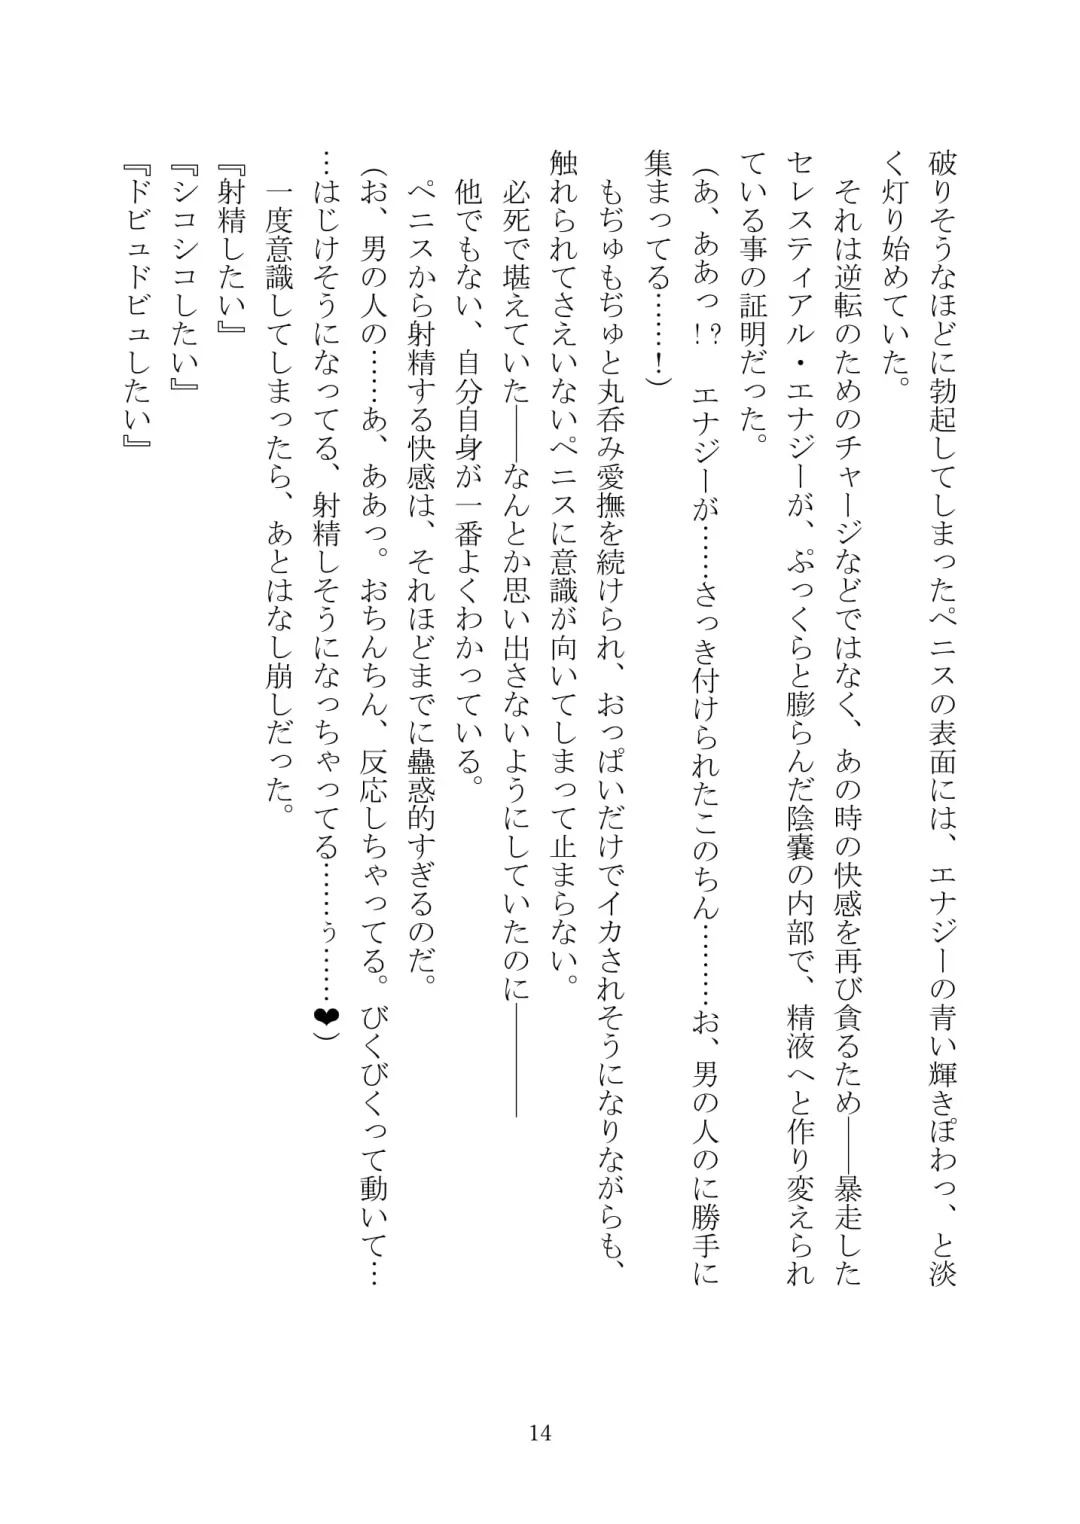 破りそうなほどに勃起してしまったペニスの表面には、エナジーの青い輝きぽわっ、と淡
く灯り始めていた。
　それは逆転のためのチャージなどではなく、あの時の快感を再び貪るため――暴走した
セレスティアル・エナジーが、ぷっくらと膨らんだ陰嚢の内部で、精液へと作り変えられ
ている事の証明だった。
（あ、ああっ！？　エナジーが……さっき付けられたこのちん………お、男の人のに勝手に
集まってる……！）
　もぢゅもぢゅと丸呑み愛撫を続けられ、おっぱいだけでイカされそうになりながらも、
触れられてさえいないペニスに意識が向いてしまって止まらない。
　必死で堪えていた――なんとか思い出さないようにしていたのに――――
　他でもない、自分自身が一番よくわかっている。
　ペニスから射精する快感は、それほどまでに蠱惑的すぎるのだ。
（お、男の人の……あ、ああっ。おちんちん、反応しちゃってる。びくびくって動いて…
…はじけそうになってる、射精しそうになっちゃってる……ぅ……❤）
　一度意識してしまったら、あとはなし崩しだった。
『射精したい』
『シコシコしたい』
『ドビュドビュしたい』
14